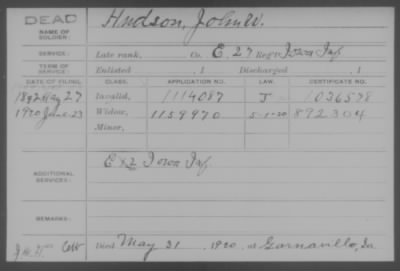 DEAD
NAME OF SOLDIER: Hudson, John W.
SERVICE: Late rank, Co. E, 27 Reg't Iowa Inf.
TERM OF SERVICE: Enlisted , 1 Discharged , 1
DATE OF FILING. CLASS. APPLICATION NO. LAW. CERTIFICATE NO.
1892 May 27 Invalid, 1114087 J 1036578
1920 June 23 Widow, 1159970 5-1-20 892304
Minor,
ADDITIONAL SERVICES: E 12 Iowa Inf.
REMARKS:
Died May 31 1920, at Garnavillo, Ia